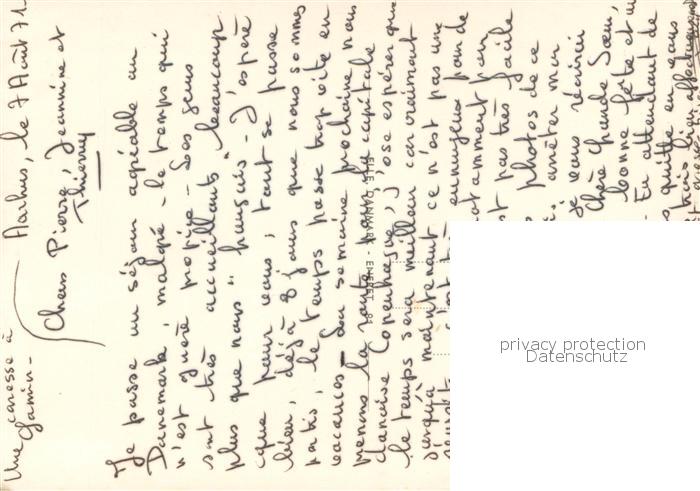 Aarhus, le 7 Août 71
Chers Pierre, Jeannine et
Thierry
Je passe un séjour agréable au
Danemark, malgré le temps qui
n'est guère propice - Les gens
sont très "accueillants" beaucoup
plus que nous "français" - J'espère
que pour vous, tout se passe
bien, déjà 8 jours que nous sommes
partis, le temps passe trop vite en
vacances - La semaine prochaine nous
prenons la route pour la capitale
danoise Copenhague, J'ose espérer que
le temps sera meilleur car vraiment
jusqu'à maintenant ce n'est pas une
ennuyeux pour de
pas très facile
photos de ce
arrêter mon
je vous récrirai
Chère grande Sœur,
bonne fête et un
En attendant de
quitte en vous
Une caresse à
Gamin -
DANMARK - ENERET
privacy protection
Datenschutz